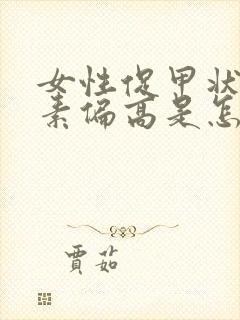 女性促甲状
素偏高是怎
賈茹